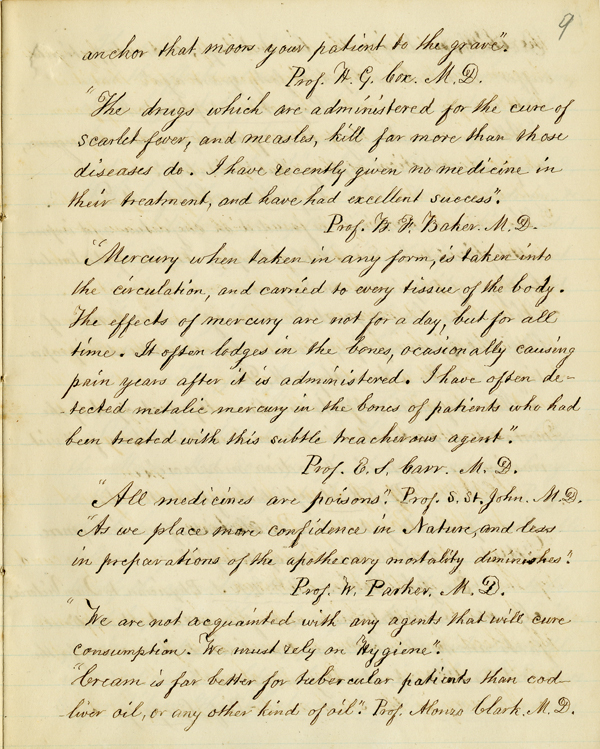 9
anchor that moors your patient to the grave".
Prof. H. G. Cox. M. D.
"The drugs which are administered for the cure of
scarlet fever, and measles, kill far more than those
diseases do. I have recently given no medicine in
their treatment, and have had excellent success".
Prof. B. F. Baker. M. D.
"Mercury when taken in any form, is taken into
the circulation, and carried to every tissue of the body.
The effects of mercury are not for a day, but for all
time. It often lodges in the bones, ocasionally causing
pain years after it is administered. I have often de-
-tected metalic mercury in the bones of patients who had
been treated with this subtle treacherous agent".
Prof. E. S. Carr. M. D.
"All medicines are poisons". Prof. S. St. John. M. D.
"As we place more confidence in Nature, and less
in preparations of the apothecary mortality diminishes".
Prof. W. Parker. M. D.
"We are not acquainted with any agents that will cure
consumption. We must rely on Hygiene".
"Cream is far better for tubercular patients than cod-
liver oil, or any other kind of oil". Prof. Alonzo Clark. M. D.